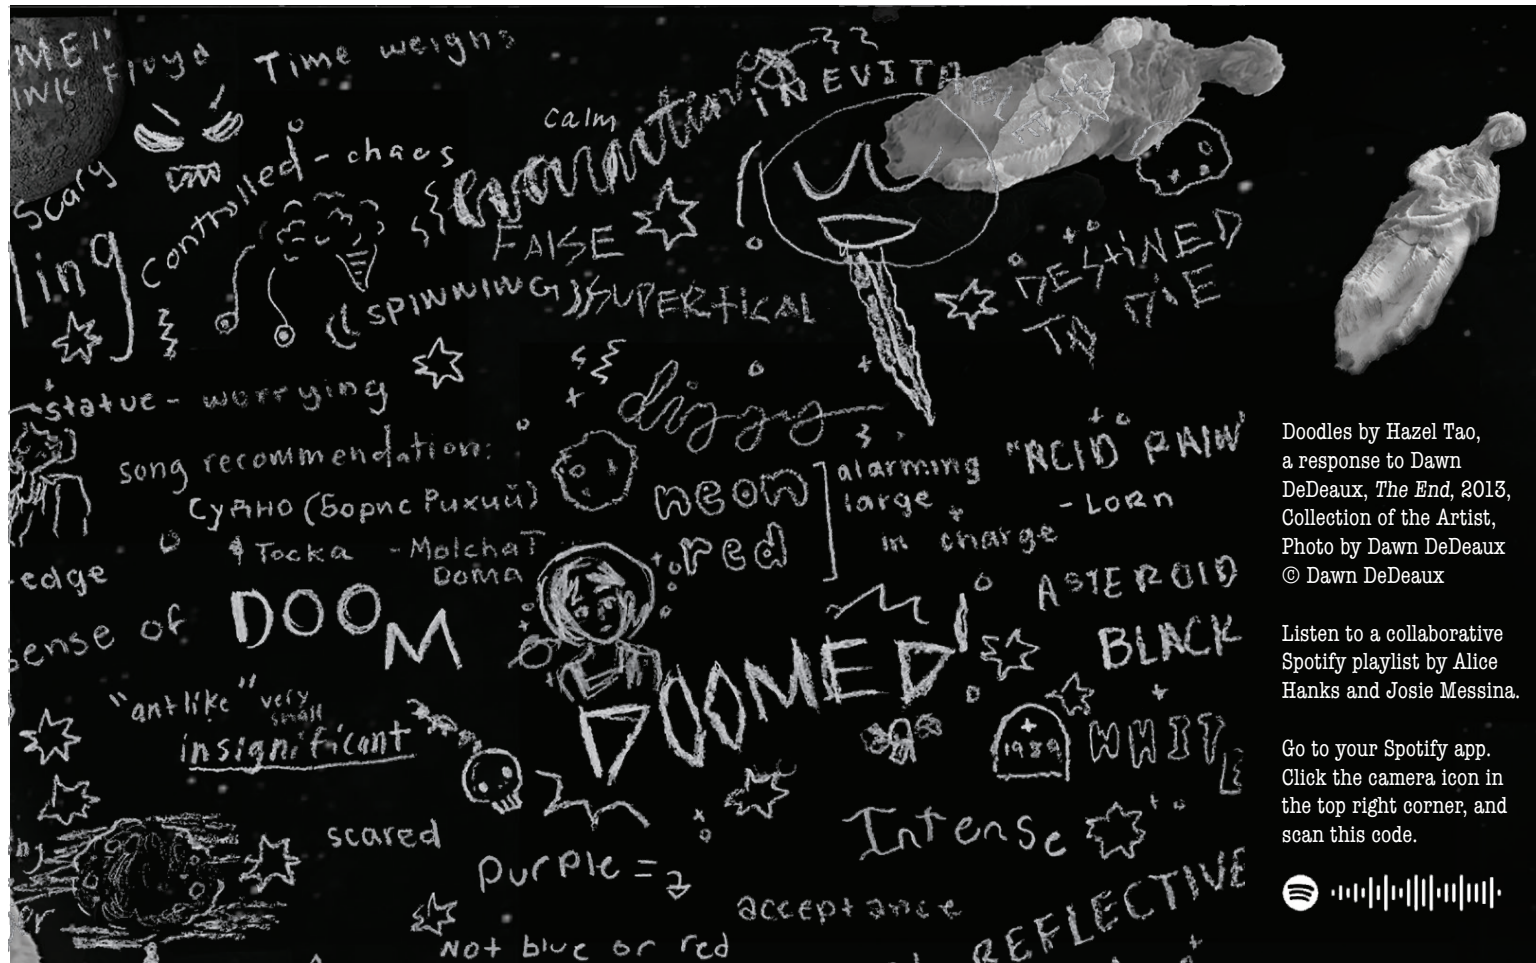 ME"
INK Floyd
Time weighs
Scary
ling
controlled-chaos
calm
INEVITABLE
FALSE
(SPINNING)
SUPERTICAL
DESTINED
TO DIE
statue - worrying
dizzy
song recommendation:
Судно (Борис Рижий)
& Тоска - Molchat
Doma
neon
red
alarming
large
in charge
"ACID RAIN"
- LORN
-edge
sense of DOOM
DOOMED
ASTEROID
BLACK
WHITE
1989
"antlike" very
small
insignificant
scared
Intense
purple = 2
acceptance
REFLECTIVE
Not blue or red
by
or
Doodles by Hazel Tao,
a response to Dawn
DeDeaux, The End, 2013,
Collection of the Artist,
Photo by Dawn DeDeaux
© Dawn DeDeaux
Listen to a collaborative
Spotify playlist by Alice
Hanks and Josie Messina.
Go to your Spotify app.
Click the camera icon in
the top right corner, and
scan this code.